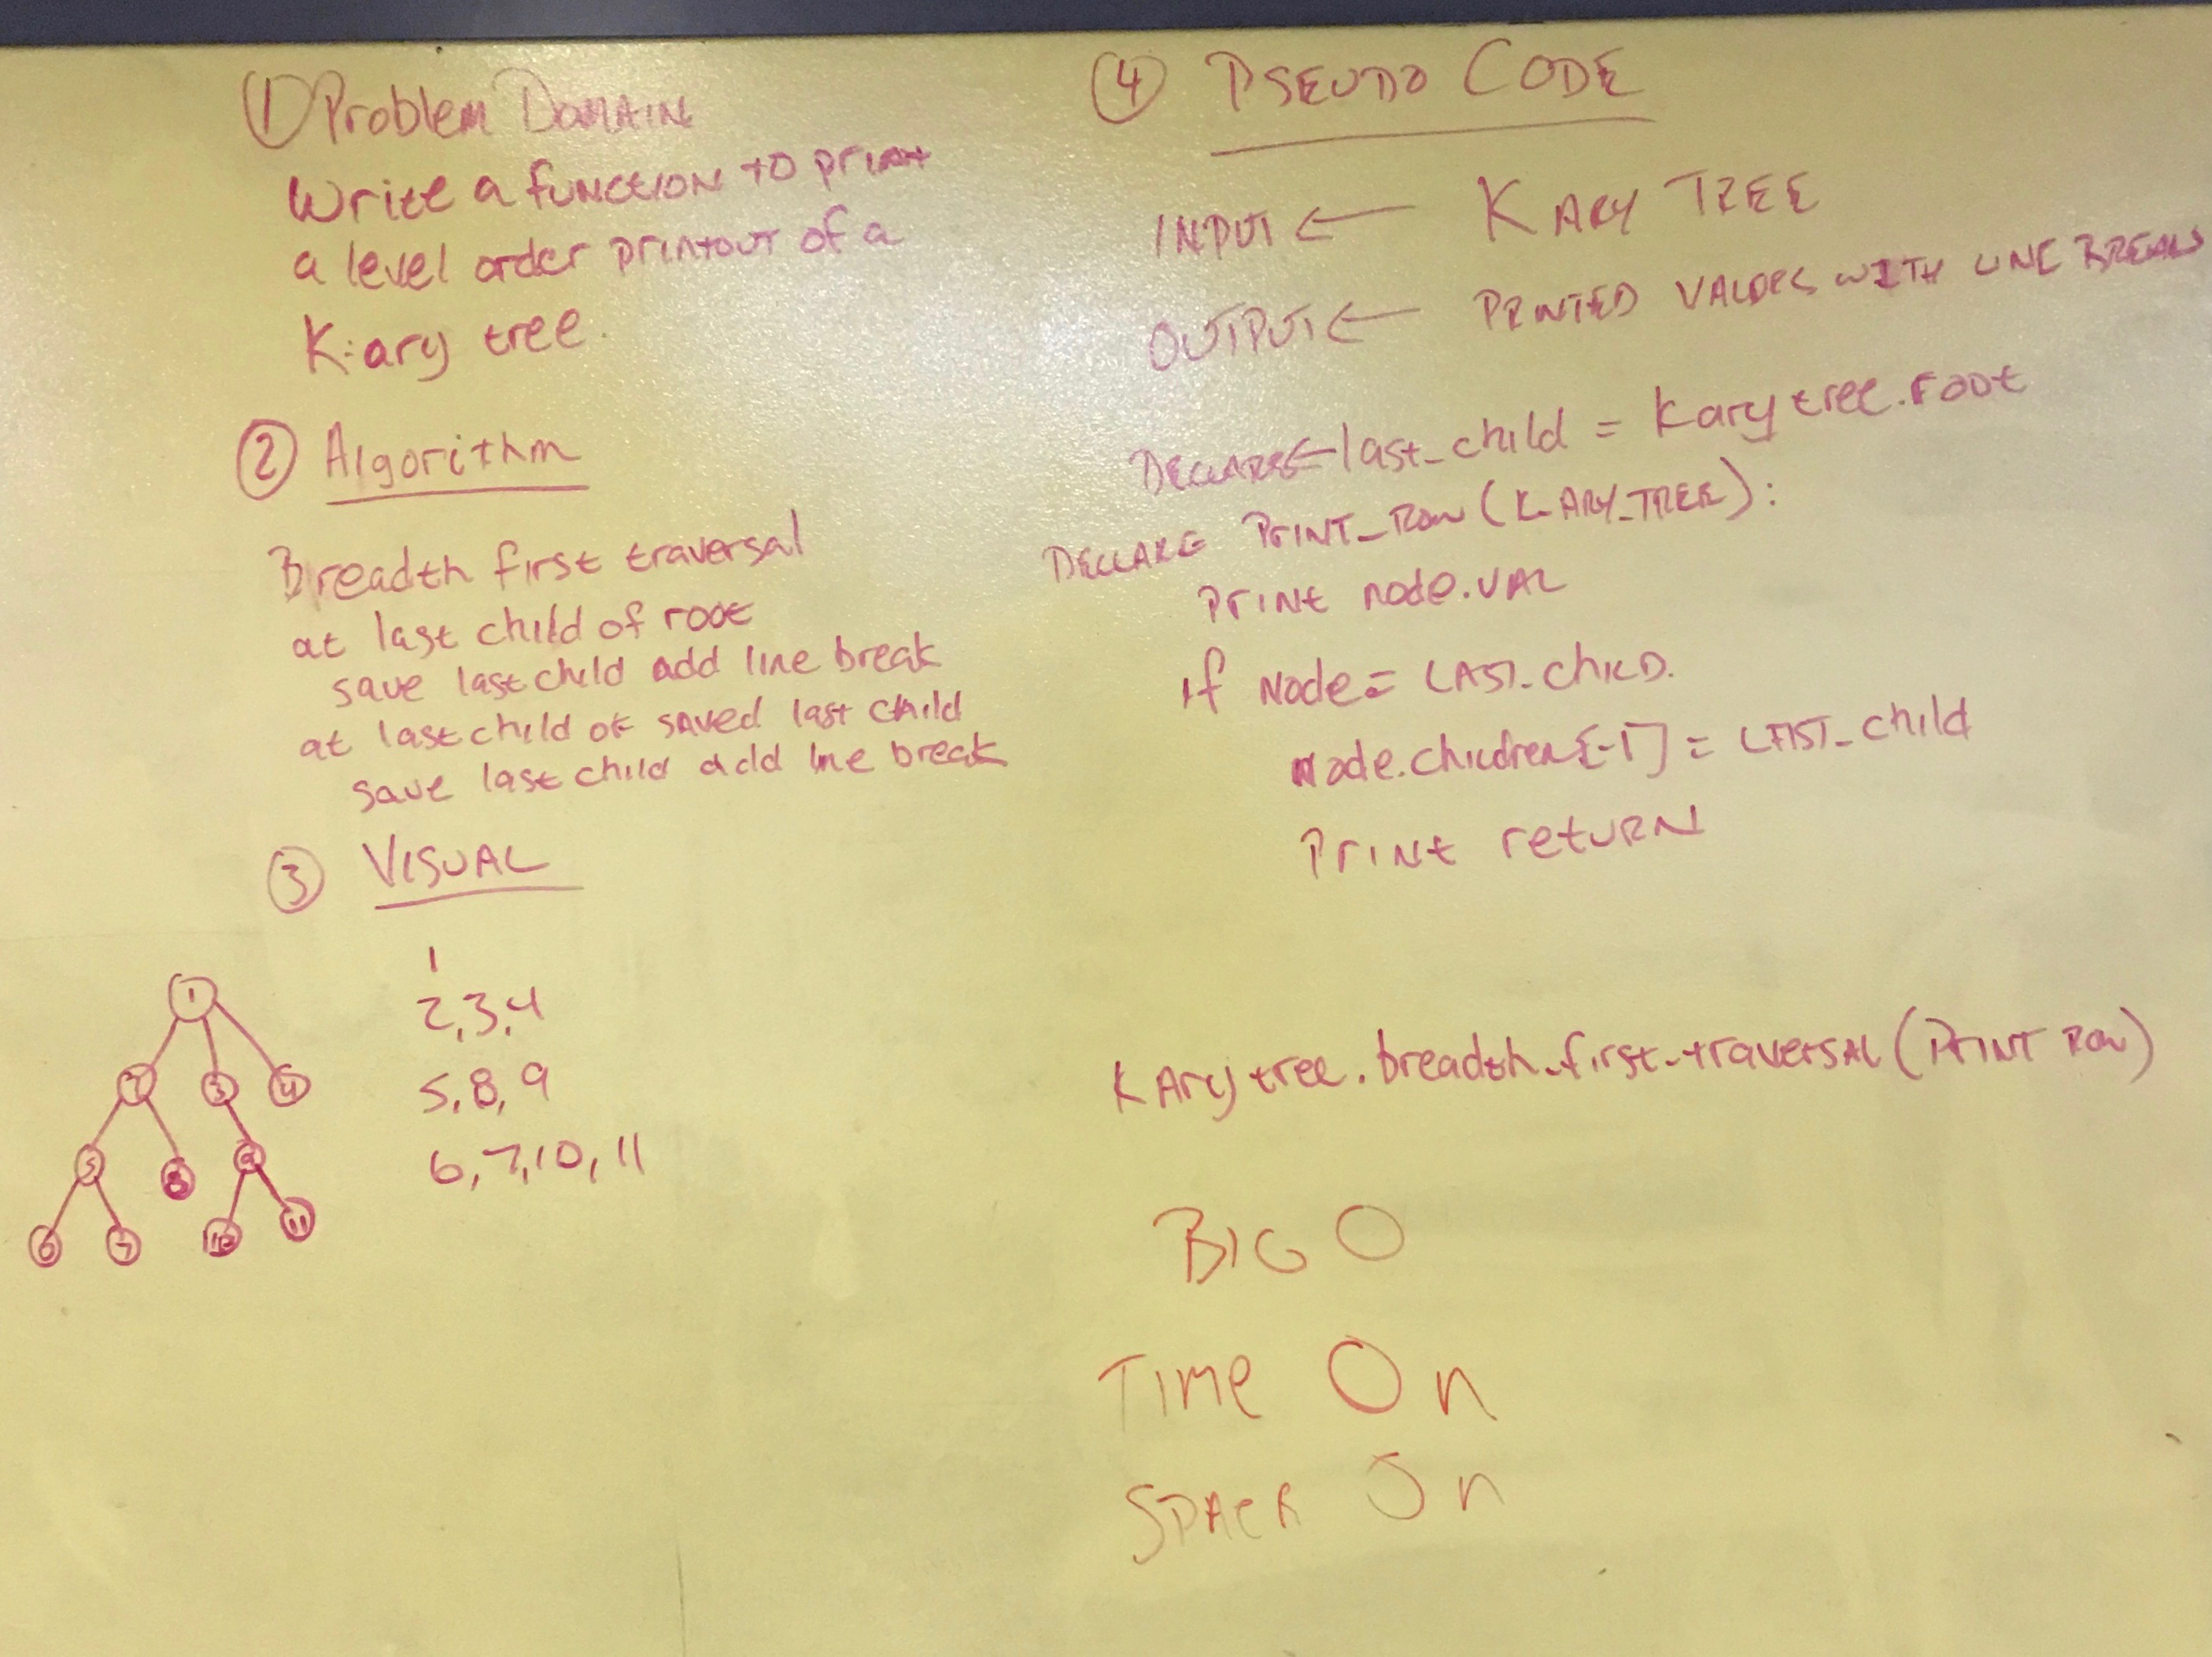 ① Problem Domain
Write a function to print
a level order printout of a
K-ary tree.
② Algorithm
Breadth first traversal
at last child of root
save last child add line break
at last child of saved last child
save last child add line break
③ VISUAL
1
2 3 4
5 8 9
6 7 10 11
1
2,3,4
5,8,9
6,7,10,11
④ PSEUDO CODE
INPUT ← KARY TREE
OUTPUT ← PRINTED VALUES WITH LINE BREAKS
DECLARE ← last_child = Kary tree.root
DECLARE PRINT_ROW (K_ARY_TREE):
Print node.VAL
if Node = LAST_CHILD.
Node.children[-1] = LAST_child
Print return
KAry tree.breadth_first_traversal (PRINT ROW)
BIG O
TIME O n
SPACE O n